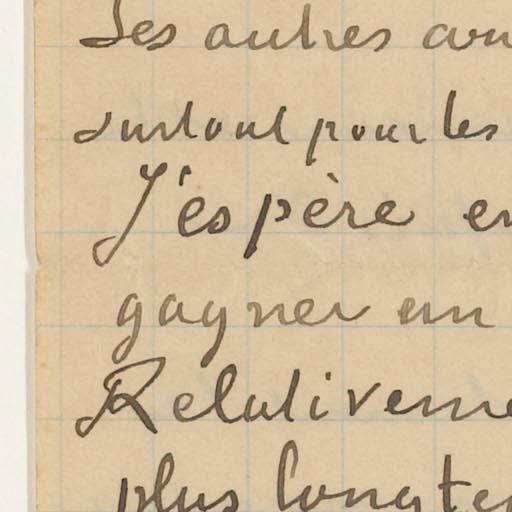 Les autres
surtout pour les
J'espère en
gagner un
Relativeme
plus longte